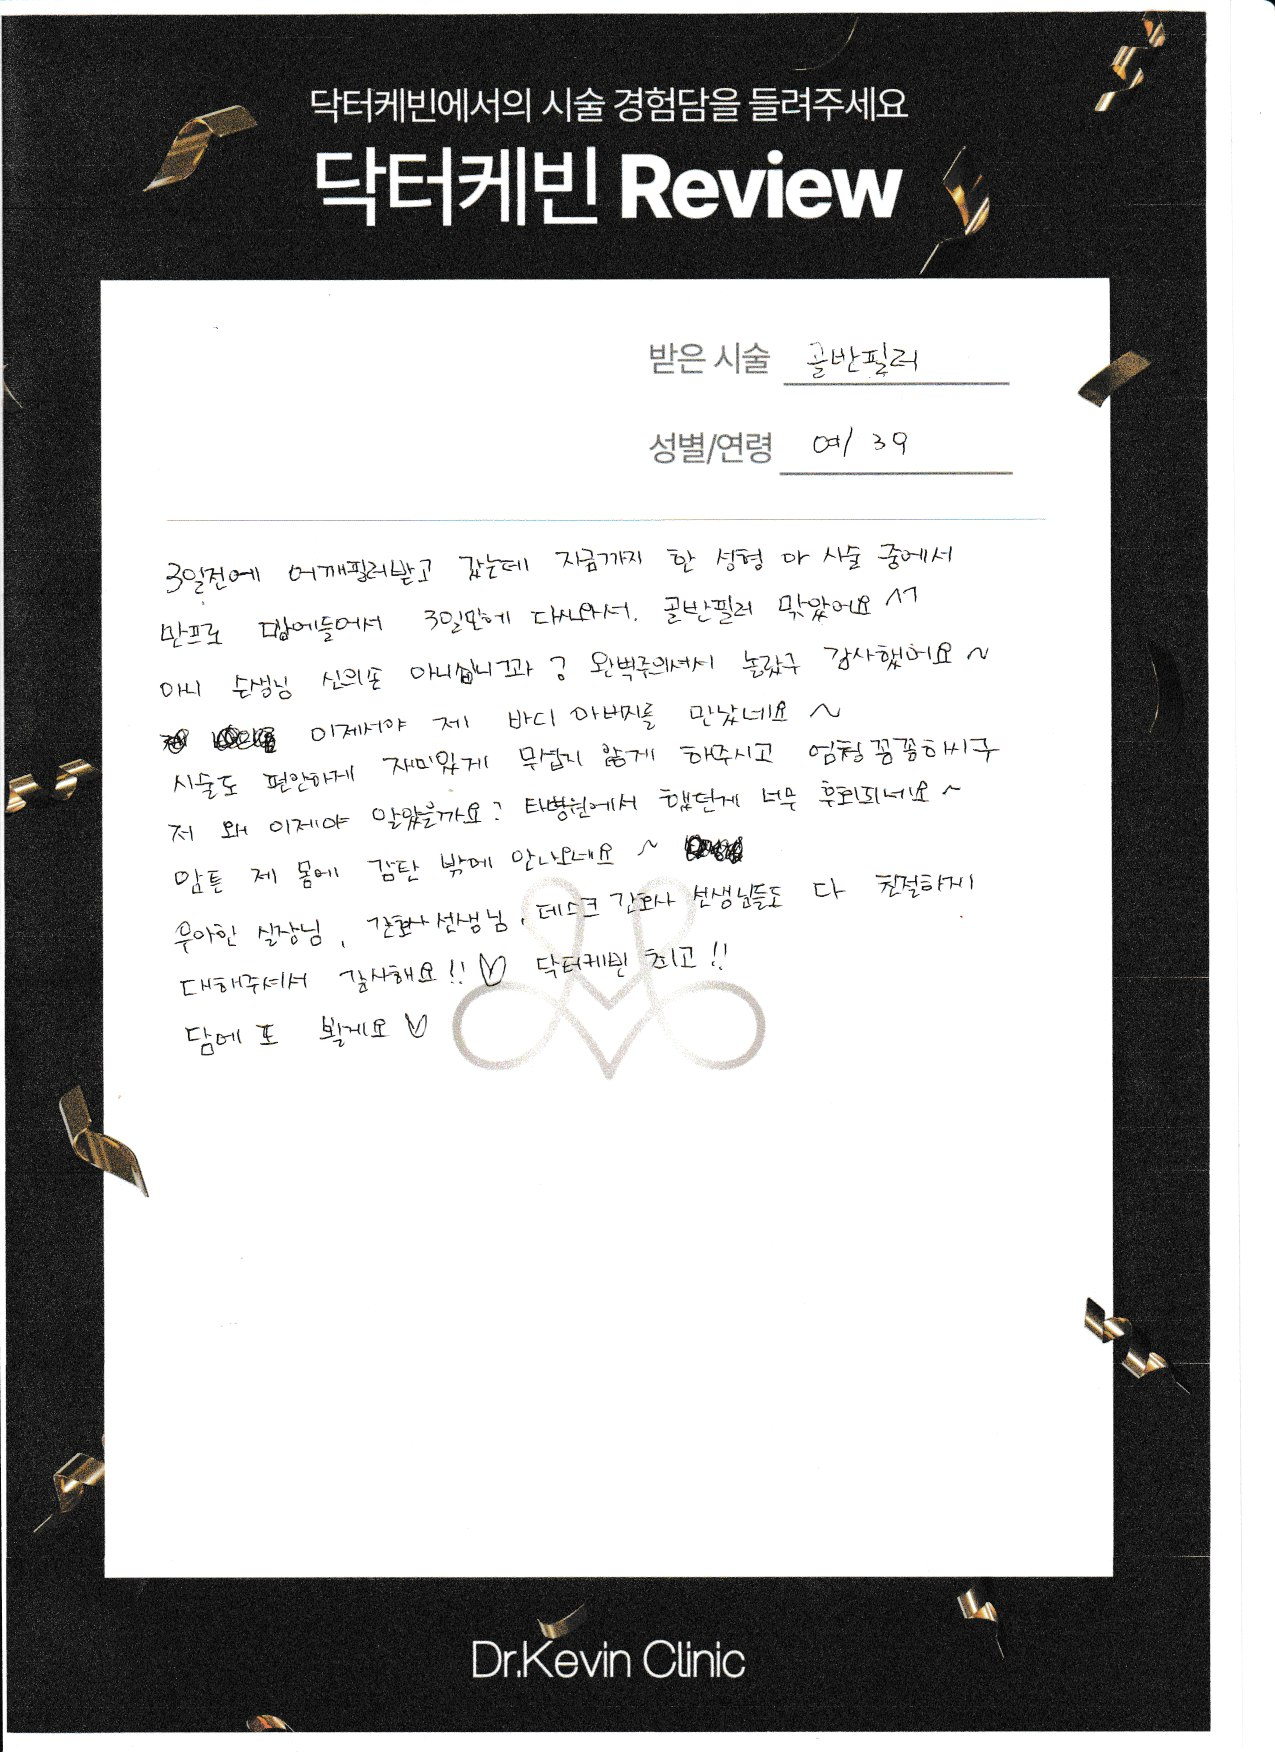 닥터케빈에서의 시술 경험담을 들려주세요
닥터케빈 Review
받은 시술 골반필러
성별/연령 여/ 39
3일전에 어깨필러받고 갔는데 지금까지 한 성형 마 시술 중에서
만프로 맘에들어서 3일만에 다시와서. 골반필러 맞았어요 ^^
아니 손생님 신의손 아니십니꽈? 완벽주의셔서 놀랐구 감사했어요~
이제서야 제 바디 아버지를 만났네요~
시술도 편안하게 재미있게 무섭지 않게 해주시고 엄청 꼼꼼하시구
저 왜 이제야 알았을까요? 타병원에서 했던게 너무 후회되네요~
암튼 제 몸에 감탄 밖에 안나오네요~
우아한 실장님, 간호사선생님, 데스크 간호사 선생님들도 다 친절하게
대해주셔서 감사해요!! ♡ 닥터케빈 최고!!
담에 또 뵐게요♡
Dr.Kevin Clinic